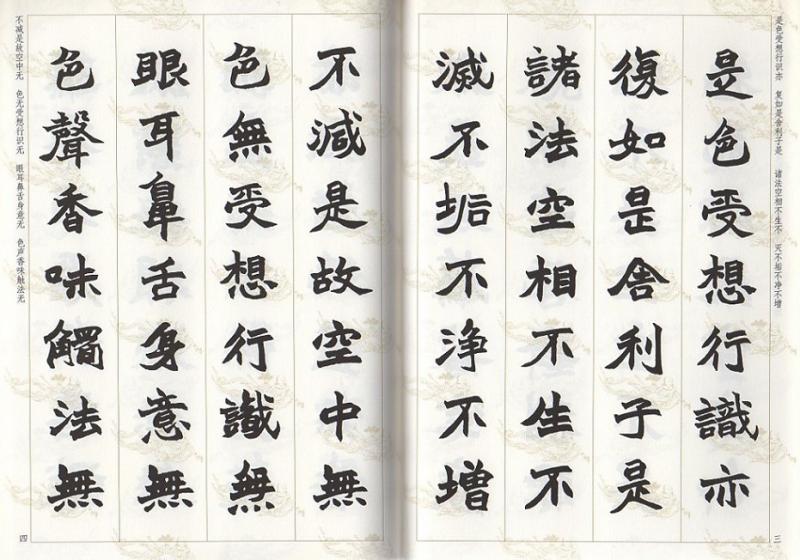 是色受想行识亦 复如是舍利子是 诸法空相不生不 灭不垢不净不增
三
是色受想行識亦
復如是舍利子是
諸法空相不生不
滅不垢不淨不增
不減是故空中無
色無受想行識無
眼耳鼻舌身意無
色聲香味觸法無
不减是故空中无 色无受想行识无 眼耳鼻舌身意无 色声香味触法无
四